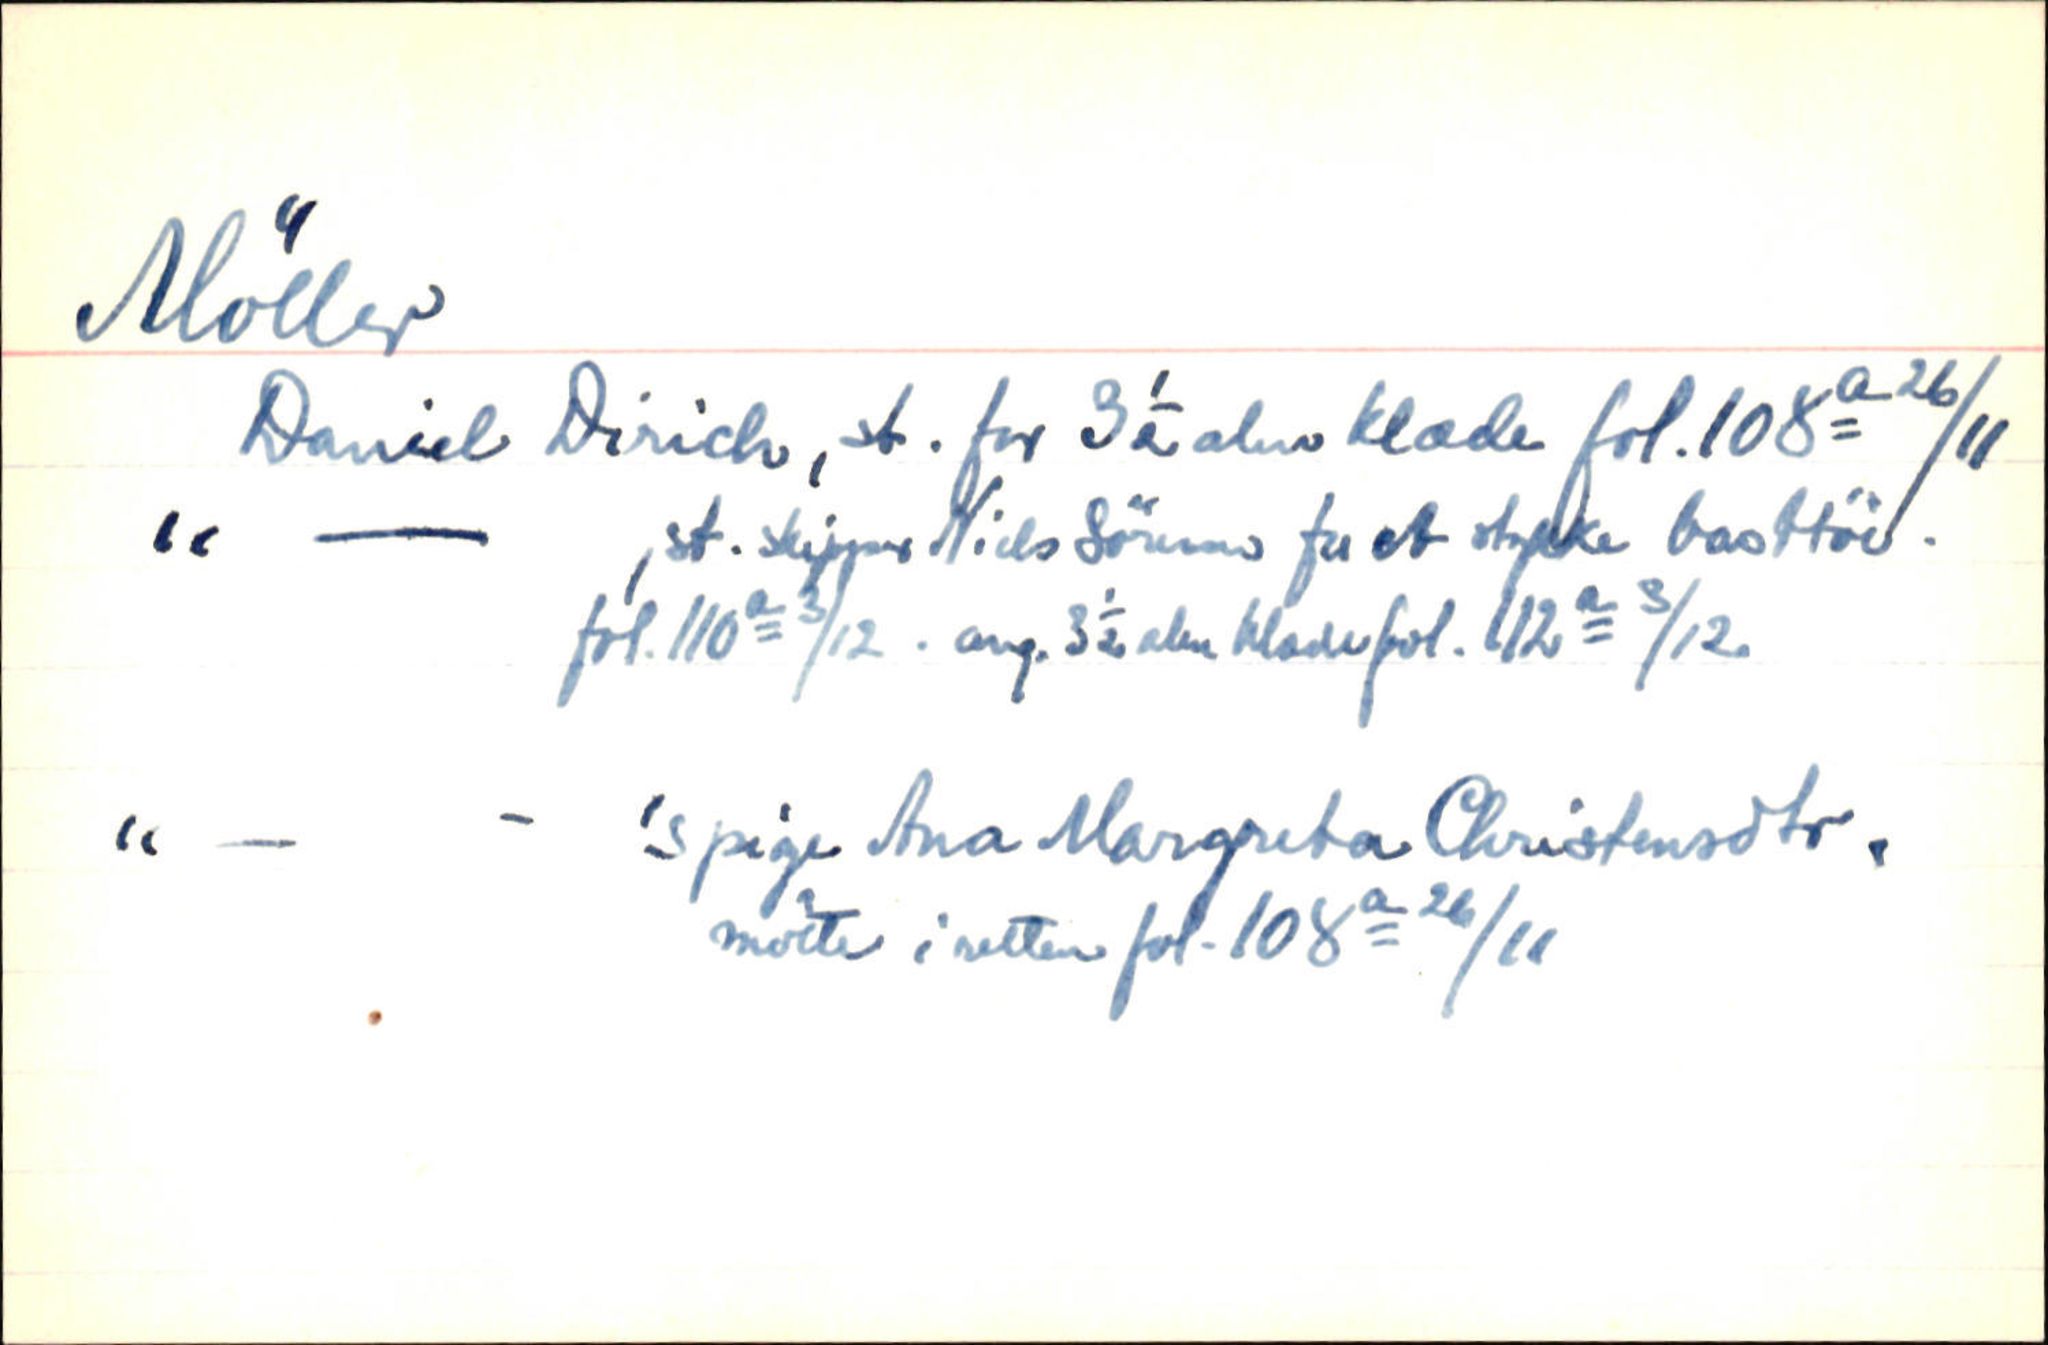 Möller
Daniel Dirich, st. for 3½ alen klæde fol. 108a 26/11
" — , st. skipper Niels Sörens for et stykke basttöi.
fol. 110a 3/12. ang. 3½ alen klæde fol. 112a 3/12.
" — - 's pige Ana Margreta Christensdtr.
mötte i retten fol. 108a 26/11